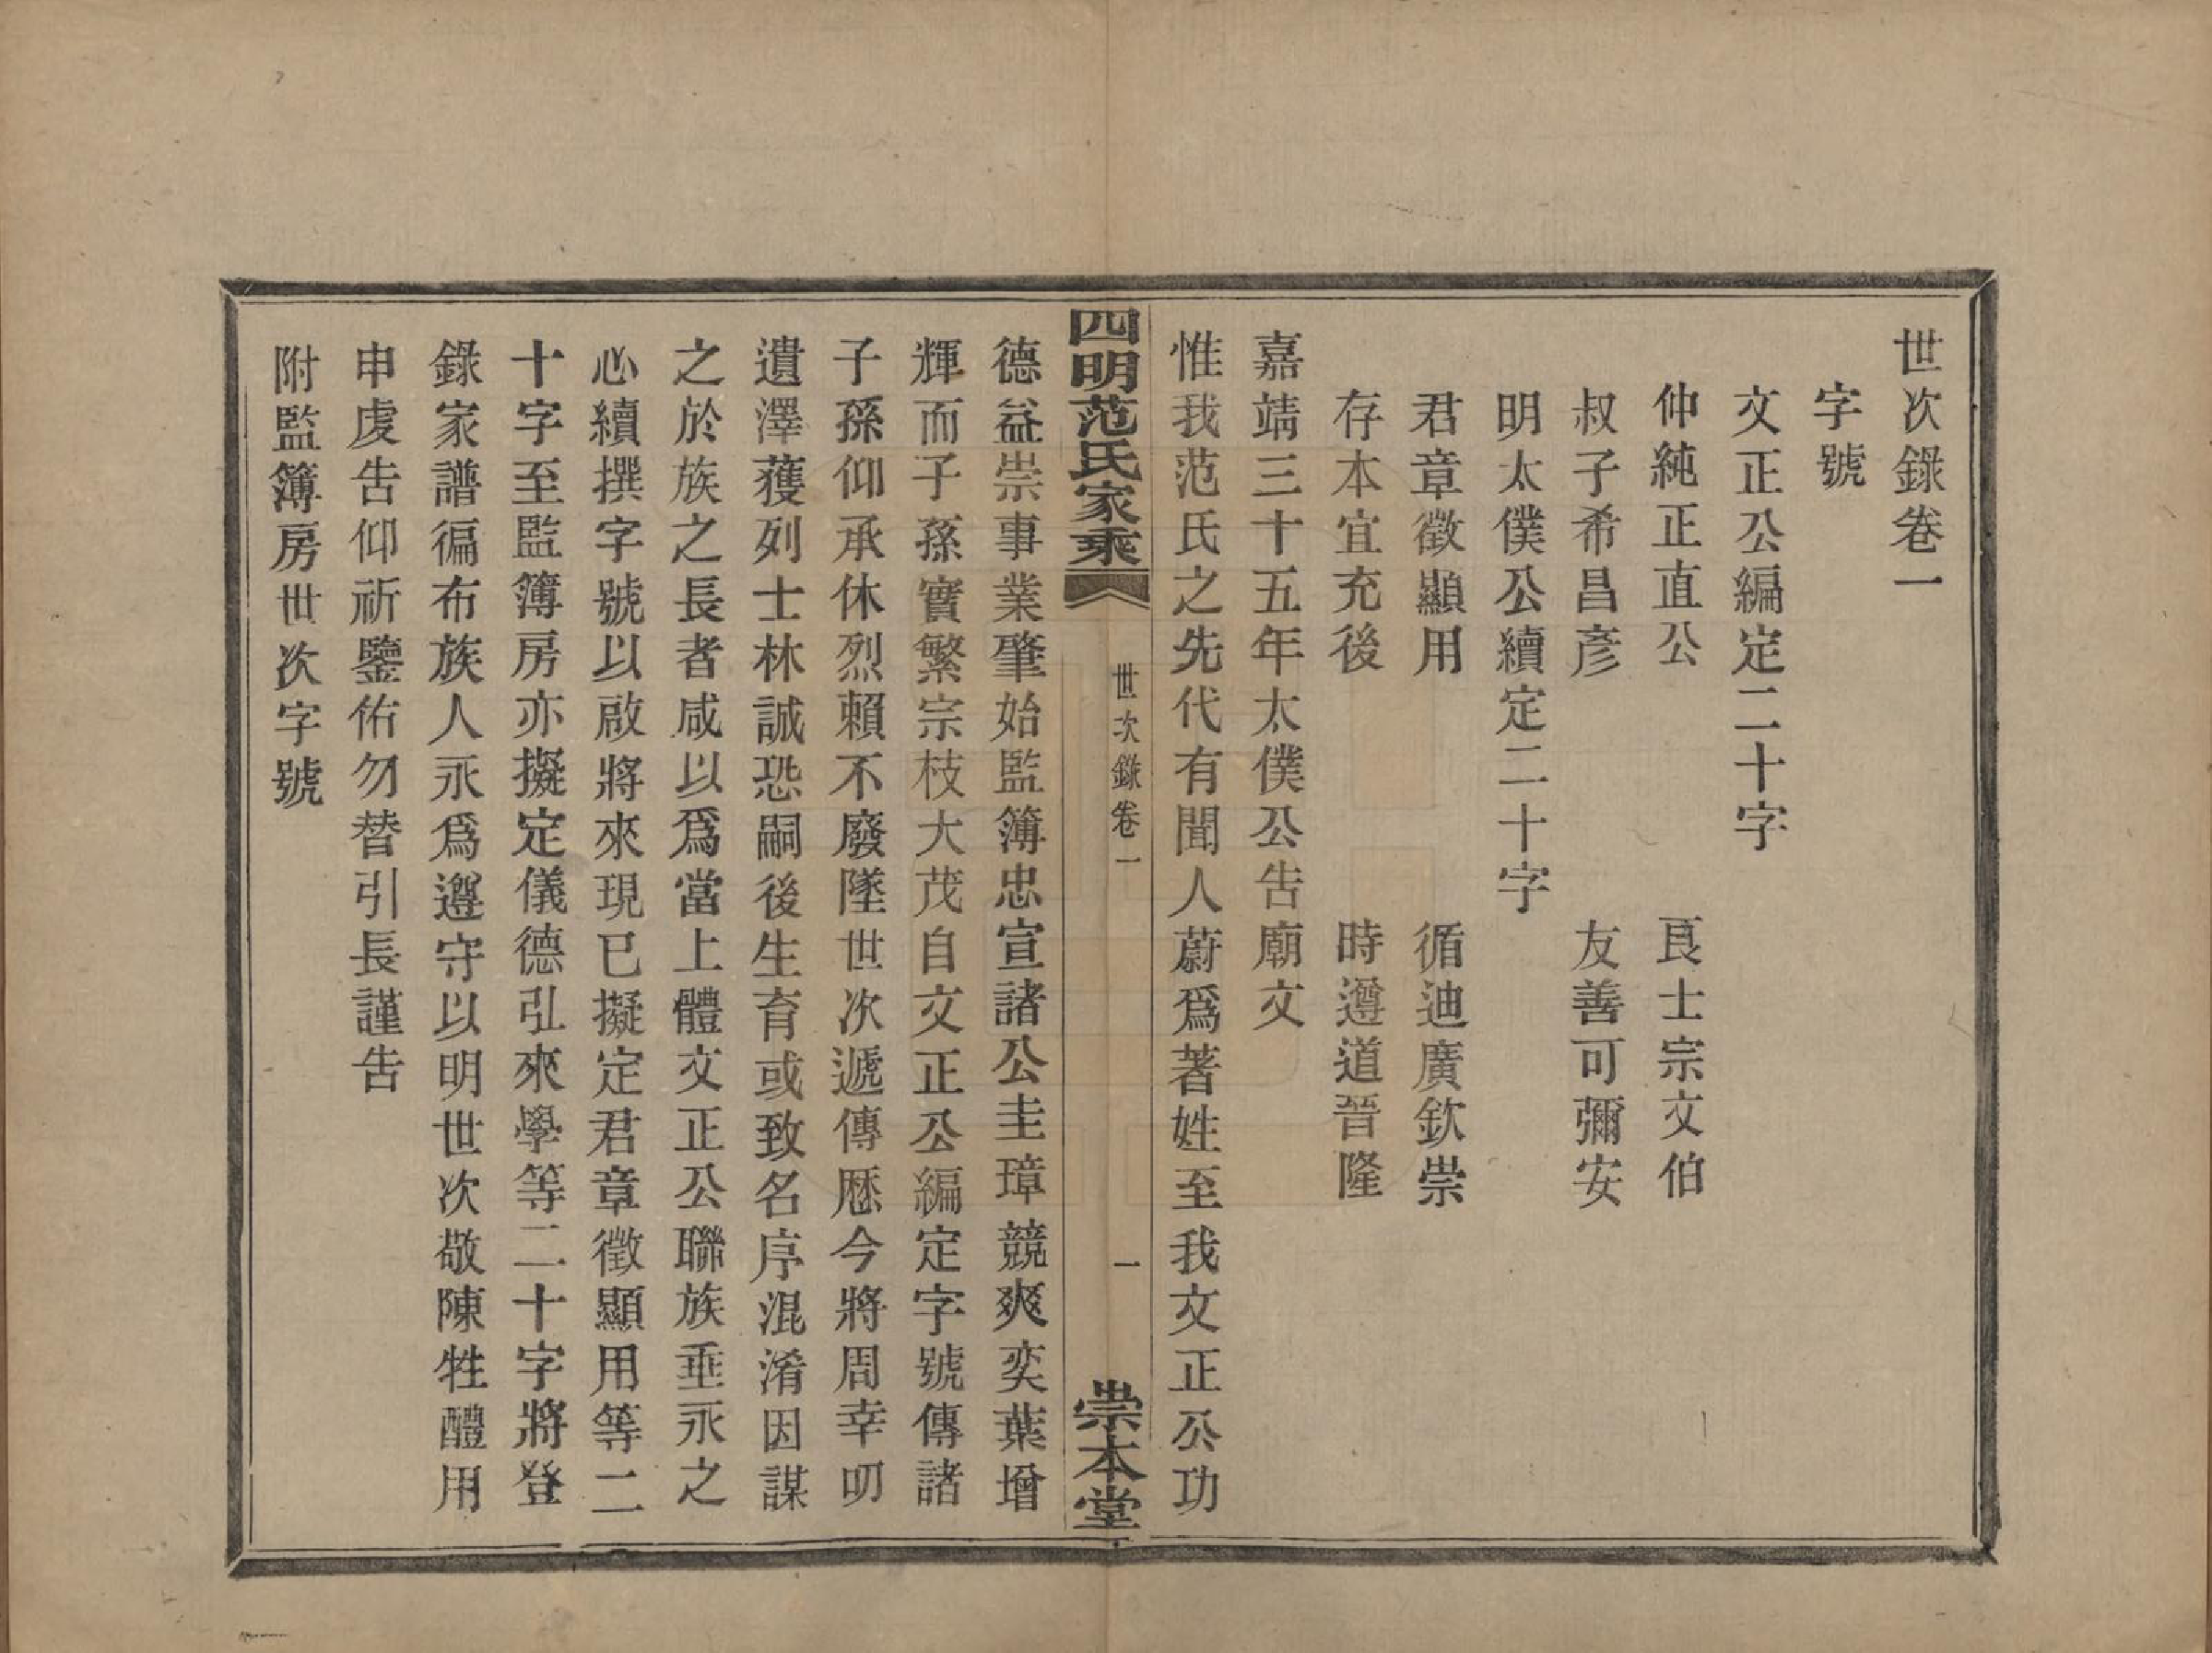 世次錄卷一
字號
文正公編定二十字
仲純正直公　良士宗文伯
叔子希昌彥　友善可彌安
明太僕公續定二十字
君章徵顯用　循迪廣欽崇
存本宜充後　時遵道晉隆
嘉靖三十五年太僕公告廟文
惟我范氏之先代有聞人蔚爲著姓至我文正公功
四明范氏家乘　世次錄卷一　一　崇本堂
德益崇事業肇始監簿忠宣諸公圭璋競爽奕葉增
輝而子孫實繁宗枝大茂自文正公編定字號傳諸
子孫仰承休烈賴不廢墜世次遞傳歷今將周幸叨
遺澤獲列士林誠恐嗣後生育或致名序混淆因謀
之於族之長者咸以爲當上體文正公聯族垂永之
心續撰字號以啟將來現已擬定君章徵顯用等二
十字至監簿房亦擬定儀德弘來學等二十字將登
錄家譜徧布族人永爲遵守以明世次敬陳牲醴用
申虔告仰祈鑒佑勿替引長謹告
附監簿房世次字號